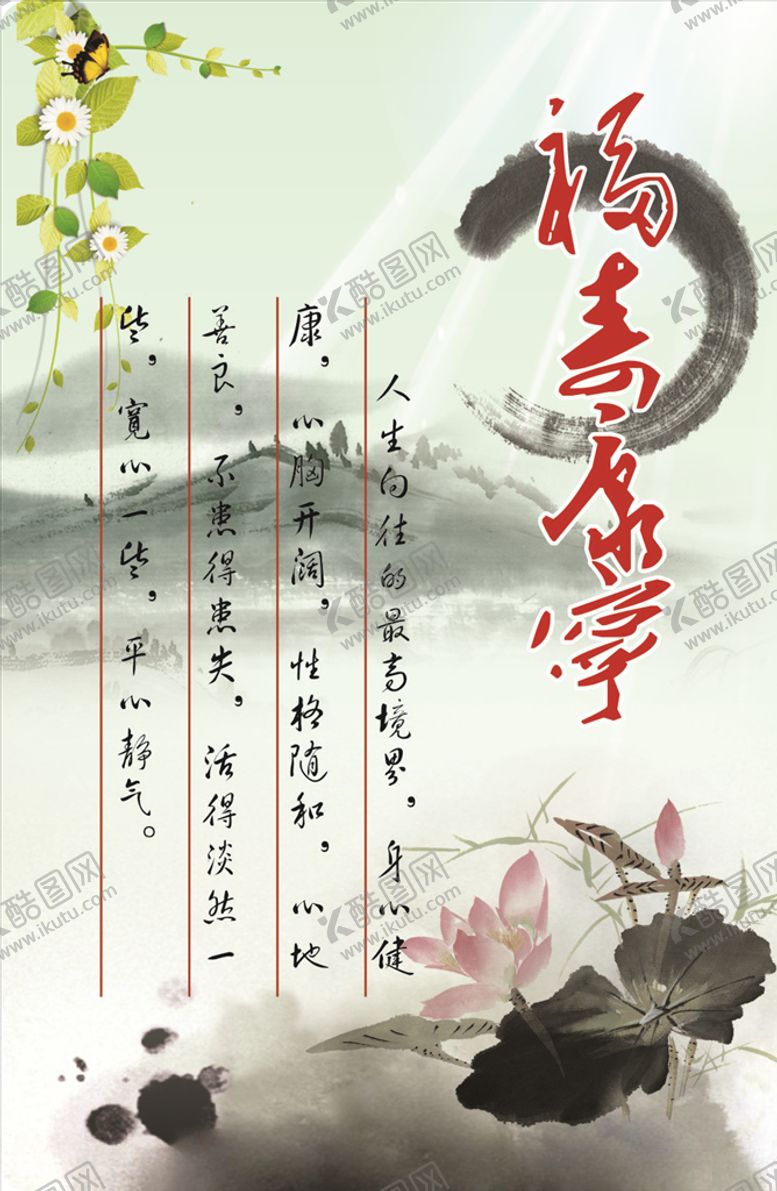 福寿康寧
人生向往的最高境界，身心健
康，心胸开阔，性格随和，心地
善良，不患得患失，活得淡然一
些，寬心一些，平心静气。
酷图网
www.ikutu.com